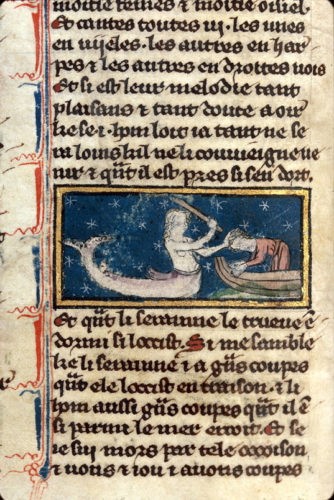 moitie femes & moitie oisiel.
Et cantes toutes iij. les unes
en vijeles. les autres en har
pes & les autres en droites vois
Et si est leur melodie tant
plaisans & tant douce a oir
ke se .i. hom lot ia tant ne se
ra lons kil ne li couviegne ve
nir & qñt il est pres si sen dort.
Et qñt li seraine le trueve ē
dormi si locist. Si me samble
ke li seraine i a gñs coupes
qñt ele locist en traison. & li
hom aussi gñs coupes qñt il
si par mi le mer Et se
ie sui mors par tele ocoison
& vous & iou i avons coupes